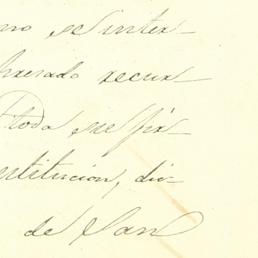 no se inter-
presado recur-
toda se fir
stitucion, di-
de San